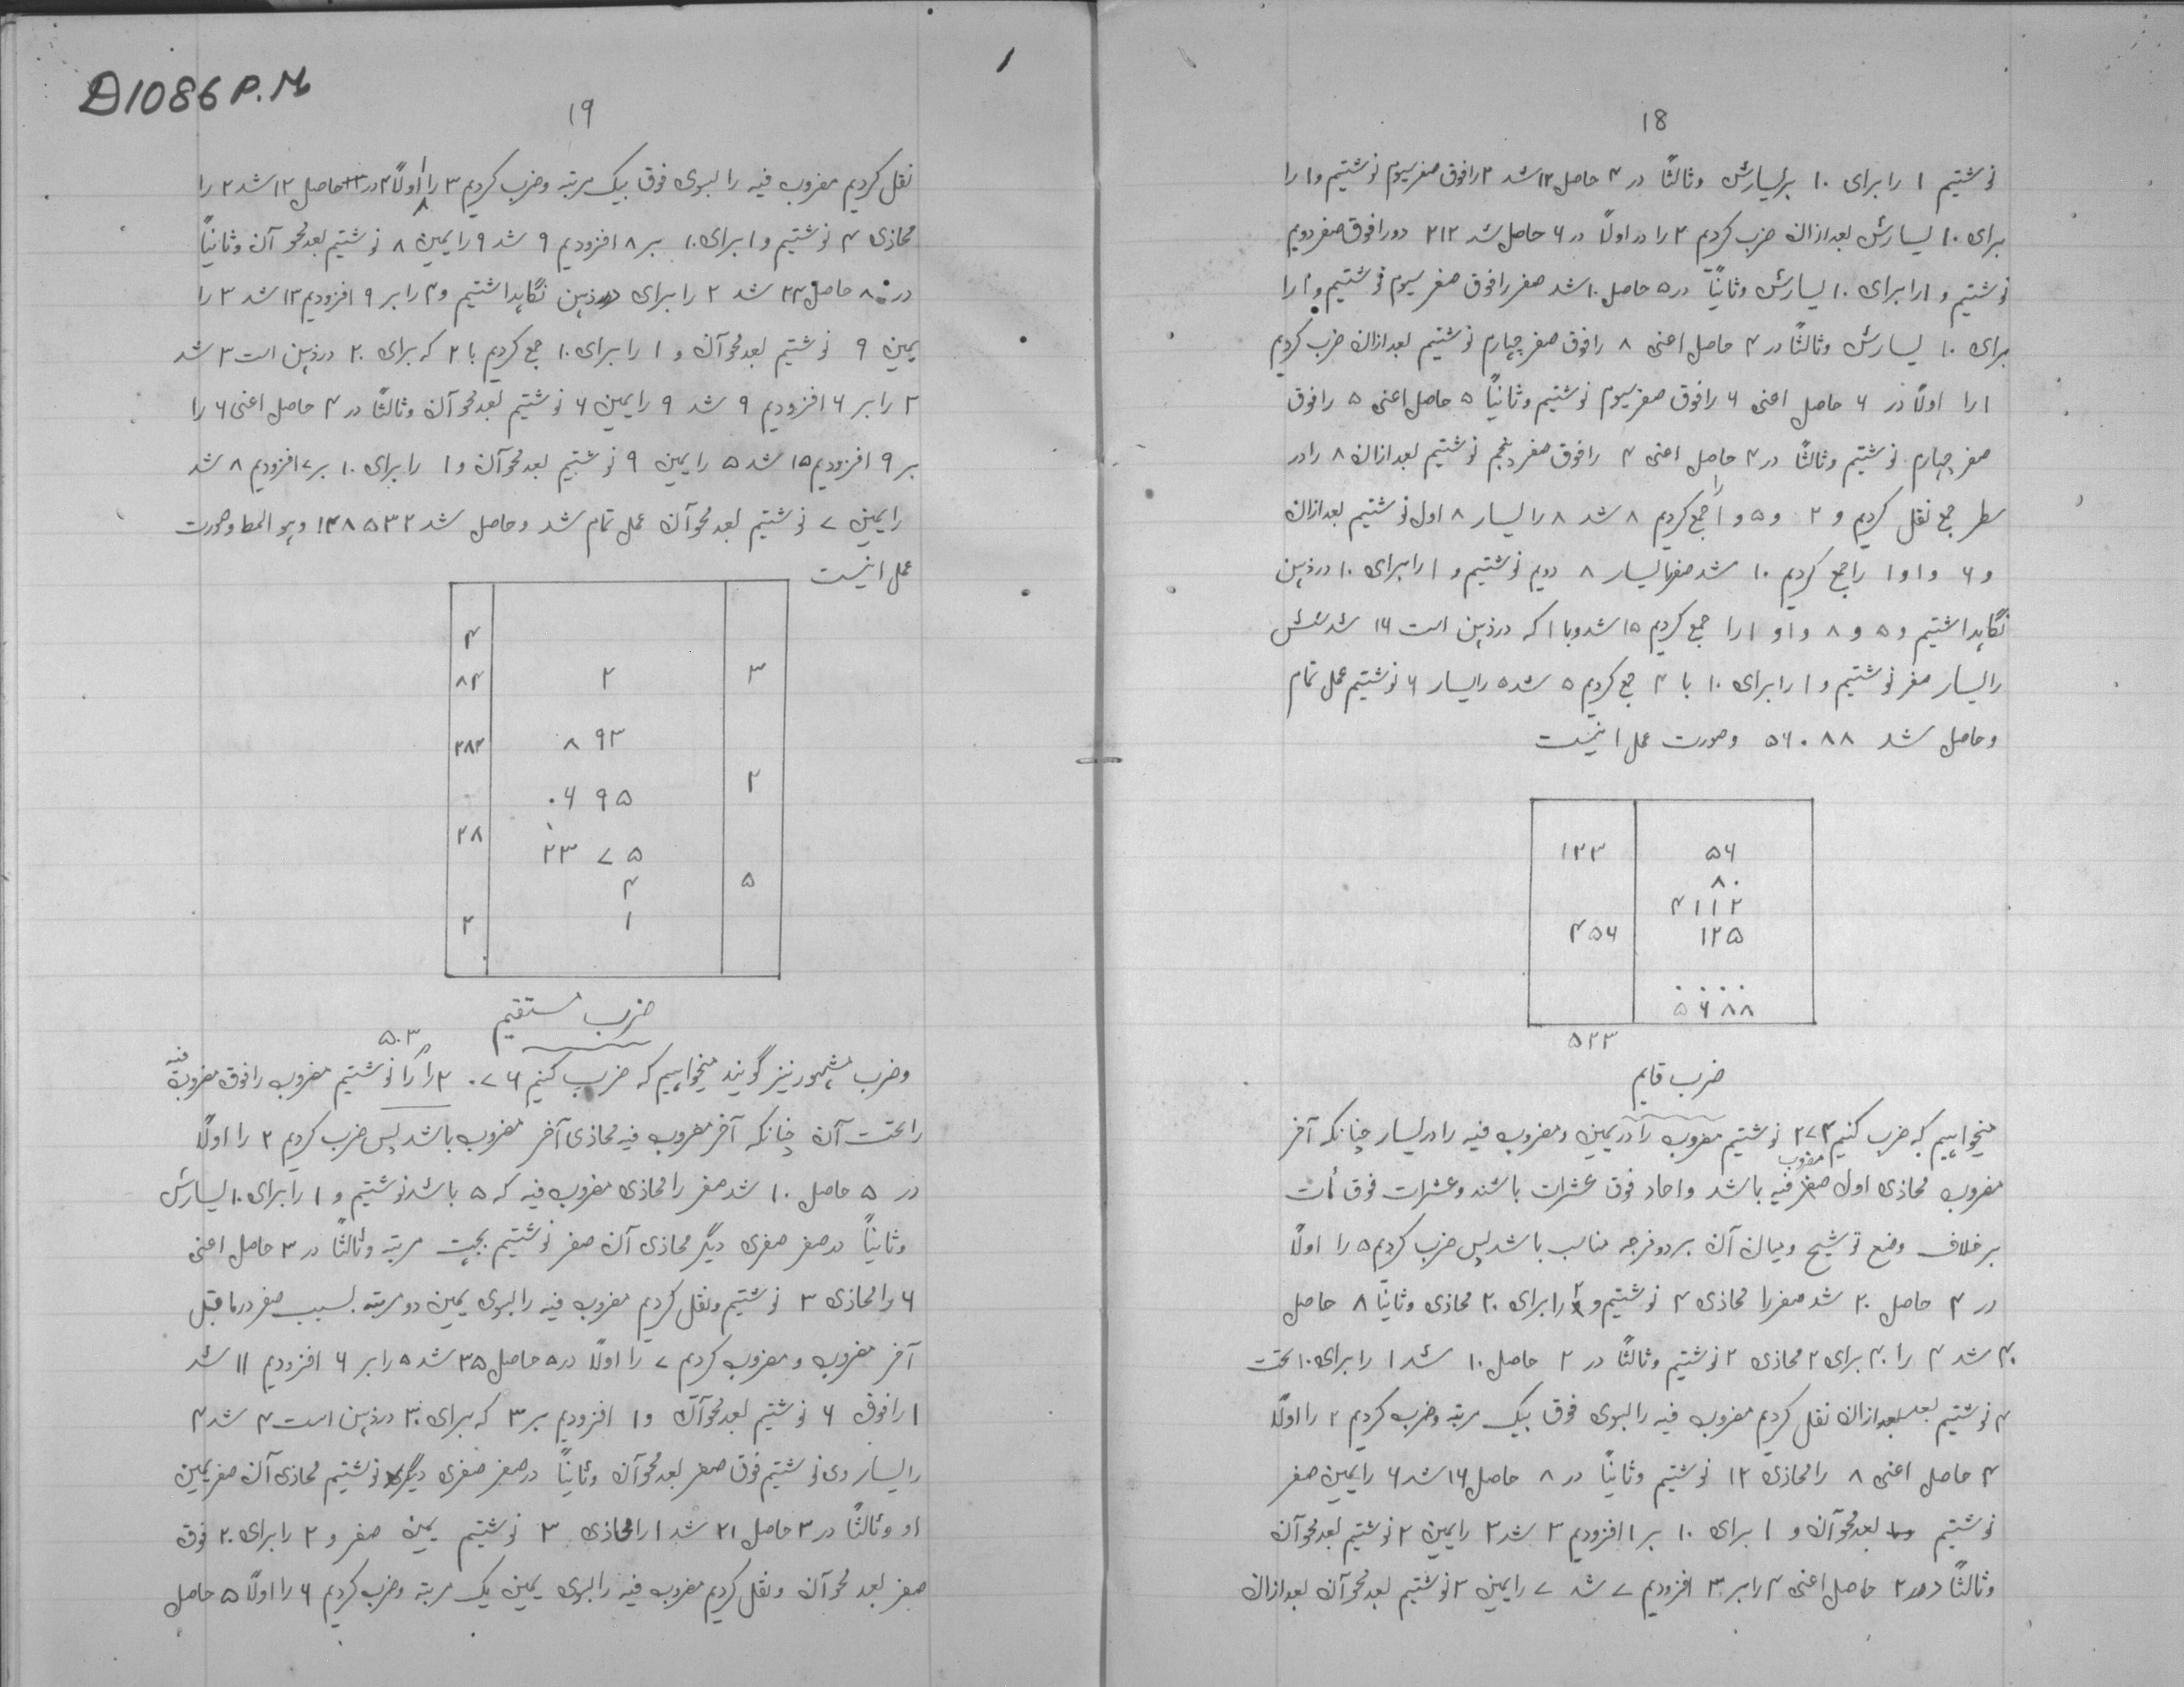 18
نوشتیم ۱ را برای ۱۰ بریسارش وثالثاً در ۴ حاصل ۱۲ شد ۲ رافوق صفر سیوم نوشتیم و ۱ را
برای ۱۰ یسارش بعد ازان ضرب کردیم ۲ را در اولاً در ۶ حاصل شد ۲۱۲ دو رافوق صفر دویم
نوشتیم و ۱را برای ۱۰ یسارش وثانیاً در ۵ حاصل ۱۰ شد صفر رافوق صفر سیوم نوشتیم و ۱ را
برای ۱۰ یسارش وثالثاً در ۴ حاصل اعنی ۸ رافوق صفر چهارم نوشتیم بعد ازان ضرب کردیم
۱ را اولاً در ۶ حاصل اعنی ۶ رافوق صفر سیوم نوشتیم وثانیاً ۵ حاصل اعنی ۵ رافوق
صفر چهارم نوشتیم وثالثاً در ۴ حاصل اعنی ۴ رافوق صفر پنجم نوشتیم بعد ازان ۸ را در
سطر جمع نقل کردیم و ۲ و ۵ و ۱ را جمع کردیم ۸ شد ۸ را یسار ۸ اول نوشتیم بعد ازان
و ۶ و ۱ و ۱ را جمع کردیم ۱۰ شد صفر را یسار ۸ دویم نوشتیم و ۱ را برای ۱۰ در ذهن
نگاهداشتیم و ۵ و ۸ و ۱ و ۱ را جمع کردیم ۱۵ شد و با ۱ که در ذهن است ۱۶ شد شش
را یسار صفر نوشتیم و ۱ را برای ۱۰ با ۴ جمع کردیم ۵ شد ۵ را یسار ۶ نوشتیم عمل تمام
وحاصل شد ۵۶۰۸۸ وصورت عمل اینست
۱۲۳ ۵۶
۸۰
۴۱۱۲
۴۵۶ ۱۲۵
۰۰۰۰
۵۶۸۸
۵۲۳
ضرب قایم
میخواهیم که ضرب کنیم ۲۷۴ نوشتیم مضروب را در یمین ومضروب فیه را در یسار چنانکه آخر
مضروب محاذی اول مضروب فیه باشد واحاد فوق عشرات باشند وعشرات فوق مأت
بر خلاف وضع توشیح ومیان آن هر دو فرجه مناسب باشد پس ضرب کردیم ۵ را اولاً
در ۴ حاصل ۲۰ شد صفر را محاذی ۴ نوشتیم و ۲ را برای ۲۰ محاذی وثانیاً ۸ حاصل
۴۰ شد ۴ را ۴۰ برای ۲ محاذی ۲ نوشتیم وثالثاً در ۲ حاصل ۱۰ شد ۱ را برای ۱۰ تحت
۴ نوشتیم بعد بعد ازان نقل کردیم مضروب فیه را بسوی فوق بیک مرتبه وضرب کردیم ۲ را اولاً
۴ حاصل اعنی ۸ را محاذی ۱۲ نوشتیم وثانیاً در ۸ حاصل ۱۶ شد ۶ را یمین صفر
نوشتیم بعد محو آن و ۱ برای ۱۰ بر ۱ افزودیم ۲ شد ۲ را یمین ۲ نوشتیم بعد محو آن
وثالثاً در ۲ حاصل اعنی ۴ را بر ۳ افزودیم ۷ شد ۷ را یمین ۲ نوشتیم بعد محو آن بعد ازان
D1086 P.M
۱
19
نقل کردیم مضروب فیه را بسوی فوق بیک مرتبه وضرب کردیم ۳ را اولاً ۴ در ۳ حاصل ۱۲ شد ۲ را
محاذی ۴ نوشتیم و ۱ برای ۱۰ بر ۸ افزودیم ۹ شد ۹ را یمین ۸ نوشتیم بعد محو آن وثانیاً
در ۸ حاصل ۲۴ شد ۲ را برای در ذهن نگاهداشتیم و ۴ را بر ۹ افزودیم ۱۳ شد ۳ را
یمین ۹ نوشتیم بعد محو آن و ۱ را برای ۱۰ جمع کردیم با ۲ که برای ۲۰ در ذهن است ۳ شد
۳ را بر ۶ افزودیم ۹ شد ۹ را یمین ۶ نوشتیم بعد محو آن وثالثاً در ۲ حاصل اعنی ۶ را
بر ۹ افزودیم ۱۵ شد ۵ را یمین ۹ نوشتیم بعد محو آن و ۱ را برای ۱۰ بر ۷ افزودیم ۸ شد
را یمین ۷ نوشتیم بعد محو آن عمل تمام شد وحاصل شد ۱۴۸۵۳۲ وهو المط وصورت
عمل اینست
۴
۸۴ ۲ ۳
۲۸۴ ۸ ۹۳
۰۶ ۹۵ ۲
۲۸
۲۳ ۷ ۵
۴ ۵
۲ ۱
ضرب مستقیم
وضرب مشهور نیز گویند میخواهیم که ضرب کنیم ۲۰۷۶ را ۵۰۳ را نوشتیم مضروب را فوق مضروب فیه
را تحت آن چنانکه آخر مضروب فیه محاذی آخر مضروب باشد پس ضرب کردیم ۲ را اولاً
در ۵ حاصل ۱۰ شد صفر را محاذی مضروب فیه که ۵ باشد نوشتیم و ۱ را برای ۱۰ یسارش
وثانیاً در صفر صفری دیگر محاذی آن صفر نوشتیم بجهت مرتبه وثالثاً در ۳ حاصل اعنی
۶ را محاذی ۳ نوشتیم ونقل کردیم مضروب فیه را بسوی یمین دو مرتبه بسبب صفر در ماقبل
آخر مضروب و مضروب کردیم ۷ را اولاً در ۵ حاصل ۳۵ شد ۵ را بر ۶ افزودیم ۱۱ شد
۱ را فوق ۶ نوشتیم بعد محو آن و ۱ افزودیم بر ۳ که برای ۳۰ در ذهن است ۴ شد ۴
را یسار وی نوشتیم فوق صفر بعد محو آن وثانیاً در صفر صفری دیگر نوشتیم محاذی آن صفر یمین
او وثالثاً در ۳ حاصل ۲۱ شد ۱ را محاذی ۳ نوشتیم یمین صفر و ۲ را برای ۲۰ فوق
صفر بعد محو آن ونقل کردیم مضروب فیه را بسوی یمین یک مرتبه وضرب کردیم ۶ را اولاً ۵ حاصل